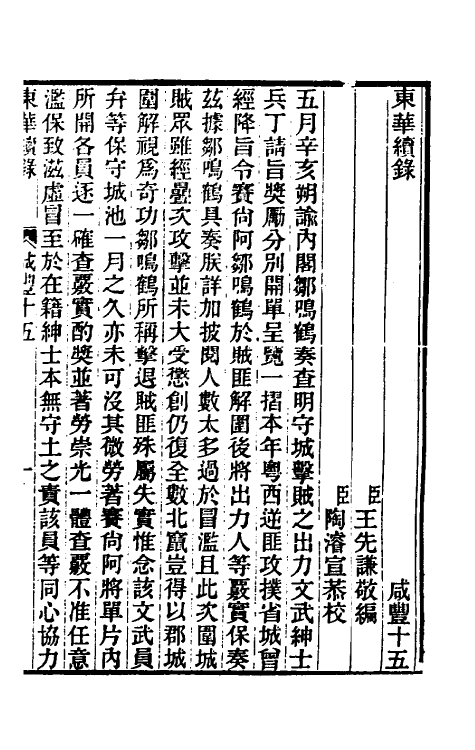 東華續錄
咸豐十五
臣王先謙敬編
臣陶濬宣恭校
五月辛亥朔諭內閣鄒鳴鶴奏查明守城擊賊之出力文武紳士
兵丁請旨獎勵分別開單呈覽一摺本年粵西逆匪攻撲省城曾
經降旨令賽尙阿鄒鳴鶴於賊匪解圍後將出力人等覈實保奏
茲據鄒鳴鶴具奏朕詳加披閱人數太多過於冒濫且此次圍城
賊眾雖經疊次攻擊並未大受懲創仍復全數北竄豈得以郡城
圍解視爲奇功鄒鳴鶴所稱擊退賊匪殊屬失實惟念該文武員
弁等保守城池一月之久亦未可沒其微勞著賽尙阿將單片內
所開各員逐一確查覈實酌獎並著勞崇光一體查覈不准任意
濫保致滋虛冒至於在籍紳士本無守土之責該員等同心協力
東華續錄
咸豐十五
一